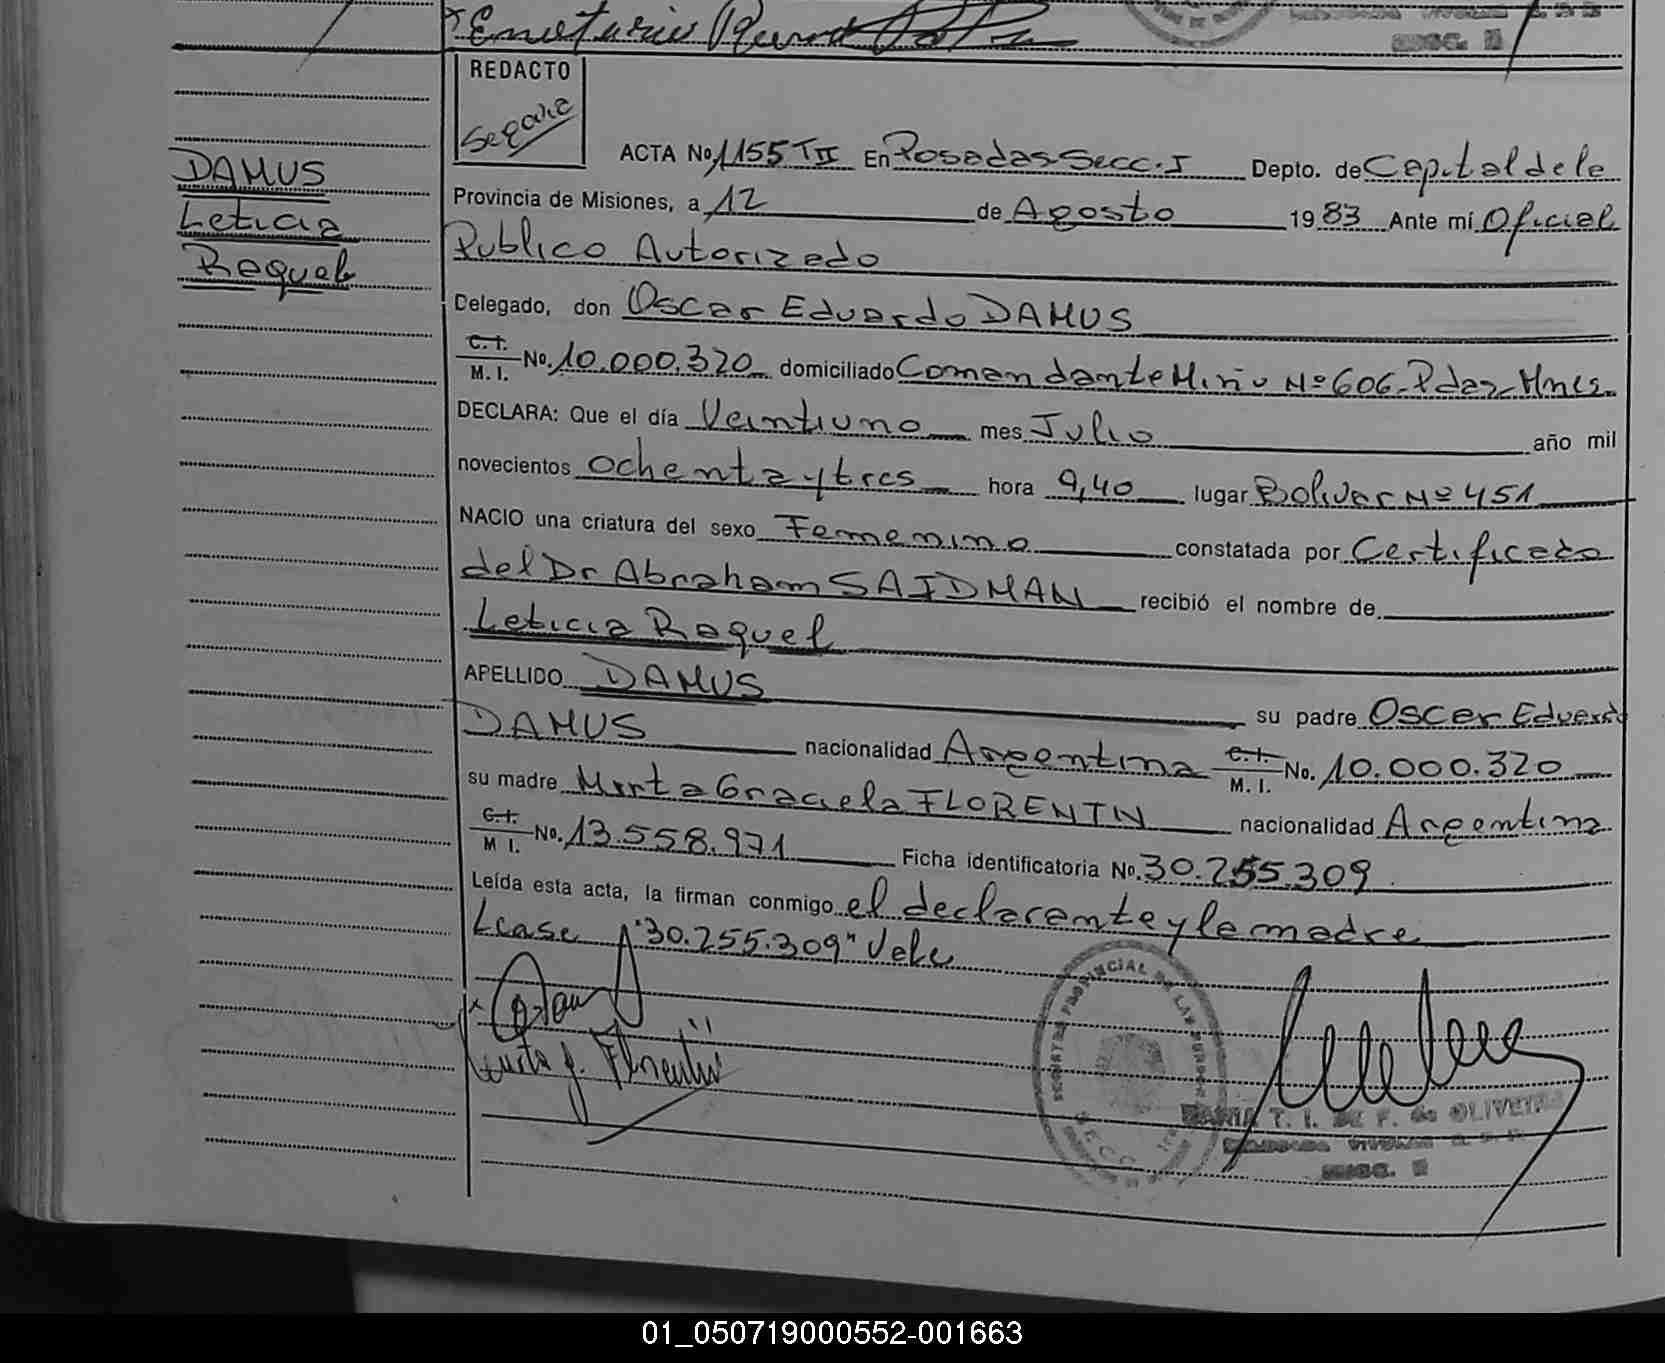 REDACTO
ACTA No. 1155 T II En Posadas Secc. I Depto. de Capital de la
DAMUS
Leticia
Raquel
Provincia de Misiones, a 12 de Agosto 1983 Ante mí Oficial
Publico Autorizado
Delegado, don Oscar Eduardo DAMUS
C.I. M.I. No. 10.000.320 domiciliado Comandante Miño Nº 606. Pdas. Mnes.
DECLARA: Que el día Veintiuno mes Julio año mil
novecientos ochenta y tres hora 9,40 lugar Bolivar Nº 451
NACIO una criatura del sexo Femenino constatada por Certificado
del Dr Abraham SAIDMAN recibió el nombre de
Leticia Raquel
APELLIDO DAMUS su padre Oscar Eduardo
DAMUS nacionalidad Argentina C.I. M.I. No. 10.000.320
su madre Mirta Graciela FLORENTIN nacionalidad Argentina
C.I. M I. No. 13.558.971 Ficha identificatoria No. 30.255.309
Leída esta acta, la firman conmigo el declarante y la madre
Lease "30.255.309" Vale
Mirta g. Florentin
MARIA T. I. DE F. de OLIVEIRA
01_050719000552-001663